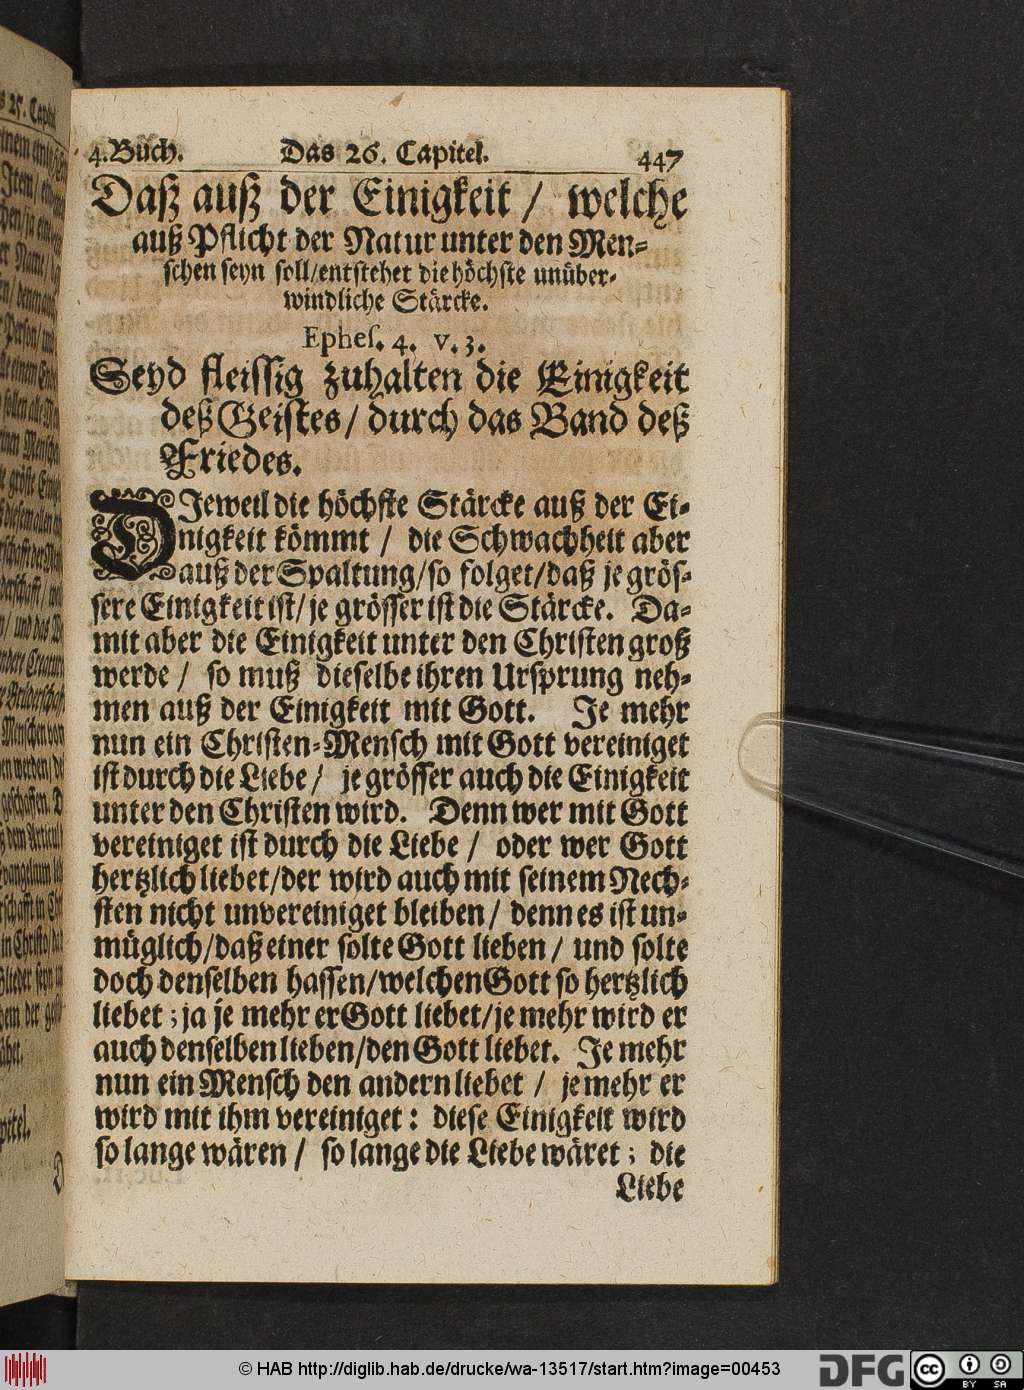 4. Buch. Das 26. Capitel. 447
Daß auß der Einigkeit / welche
auß Pflicht der Natur unter den Men-
schen seyn soll/ entstehet die höchste unüber-
windliche Stärcke.
Ephes. 4. v. 3.
Seyd fleissig zuhalten die Einigkeit
deß Geistes / durch das Band deß
Friedes.
DIeweil die höchste Stärcke auß der Ei-
nigkeit kömmt / die Schwachheit aber
auß der Spaltung/ so folget/ daß je grös-
sere Einigkeit ist/ je grösser ist die Stärcke. Da-
mit aber die Einigkeit unter den Christen groß
werde / so muß dieselbe ihren Ursprung neh-
men auß der Einigkeit mit Gott. Je mehr
nun ein Christen-Mensch mit Gott vereiniget
ist durch die Liebe / je grösser auch die Einigkeit
unter den Christen wird. Denn wer mit Gott
vereiniget ist durch die Liebe / oder wer Gott
hertzlich liebet/ der wird auch mit seinem Nech-
sten nicht unvereiniget bleiben / denn es ist un-
müglich/ daß einer solte Gott lieben / und solte
doch denselben hassen/ welchen Gott so hertzlich
liebet ; ja je mehr er Gott liebet/ je mehr wird er
auch denselben lieben/ den Gott liebet. Je mehr
nun ein Mensch den andern liebet / je mehr er
wird mit ihm vereiniget : diese Einigkeit wird
so lange wären / so lange die Liebe wäret ; die
Liebe
© HAB http://diglib.hab.de/drucke/wa-13517/start.htm?image=00453
DFG
cc BY SA